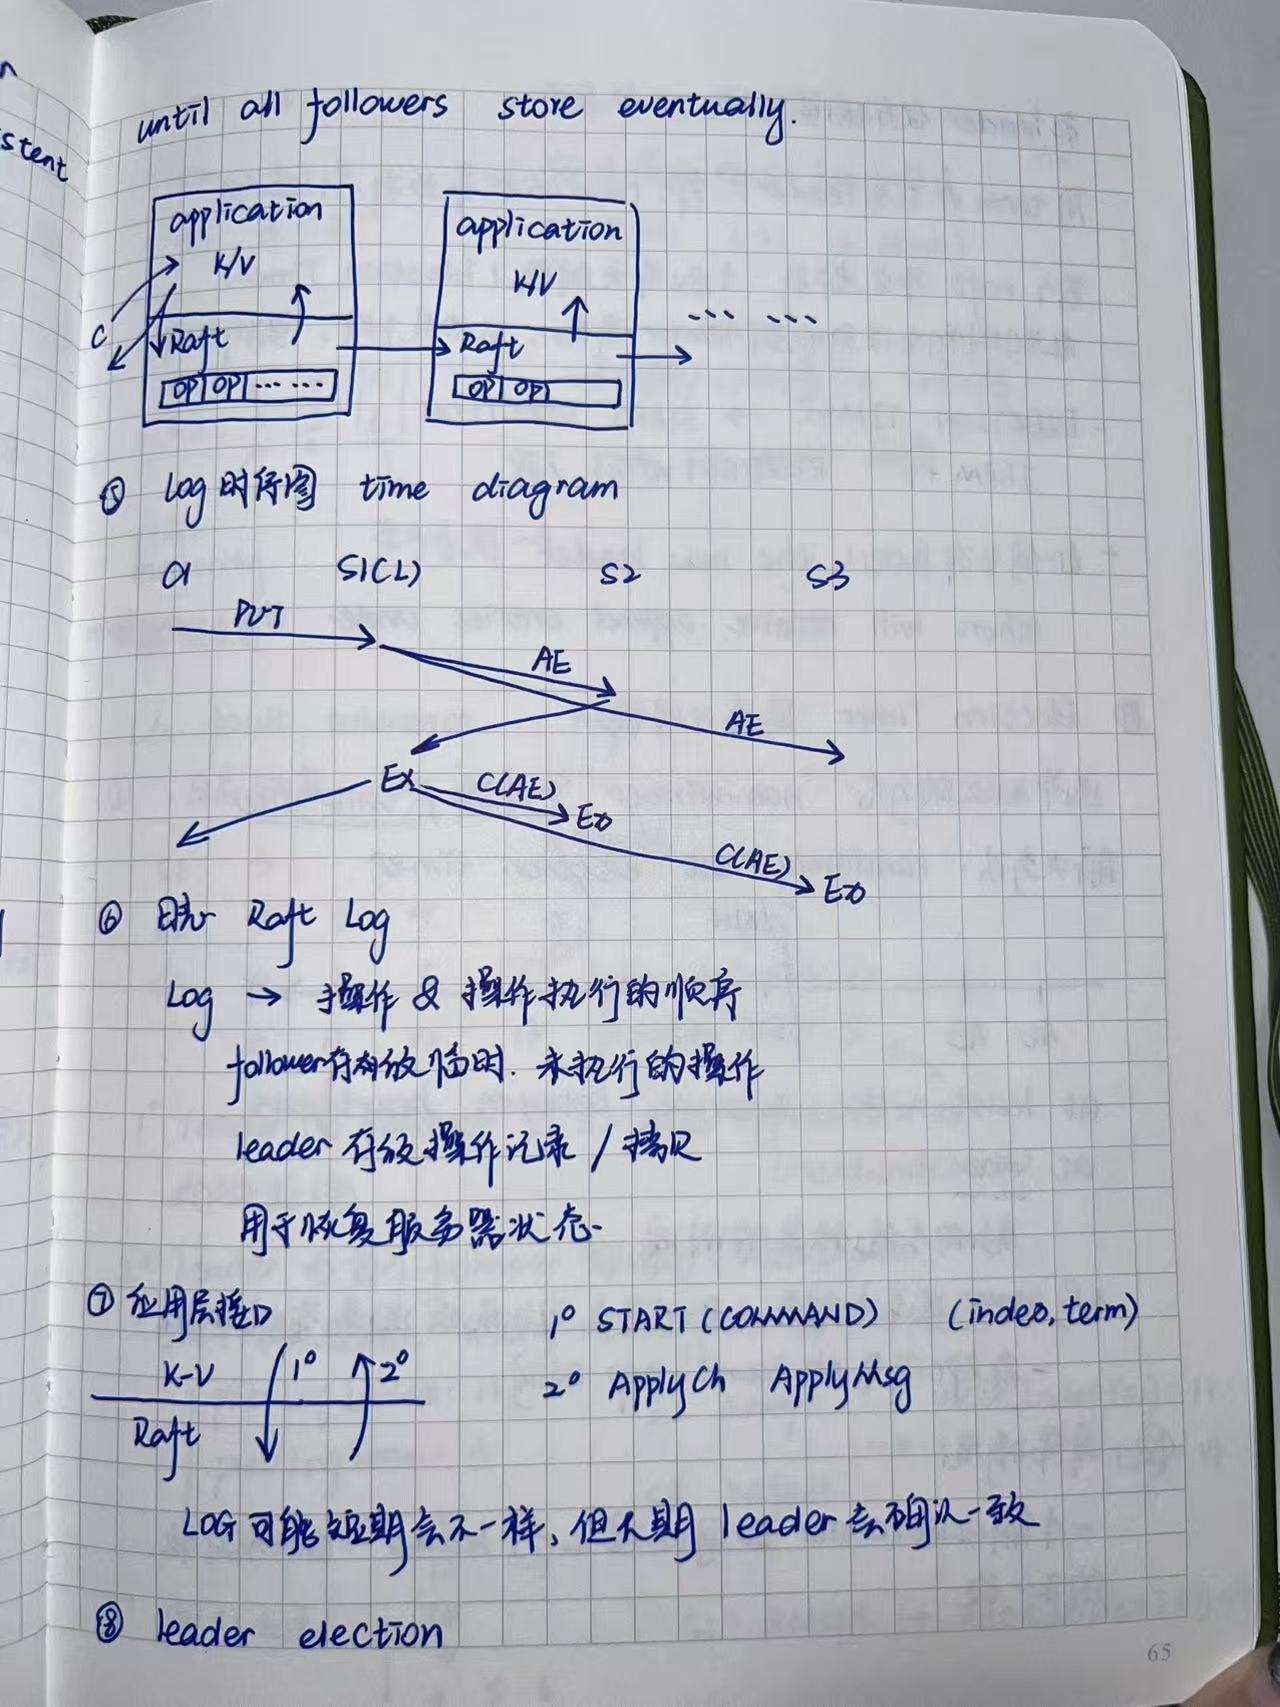 stent
until all followers store eventually.
application
K/V
C
Raft
OP OP ... ...
application
K/V
Raft
OP OP
... ...
⑤ Log时序图 time diagram
C1 S1(L) S2 S3
PUT
AE
AE
Ex
C(AE)
Ex
C(AE)
Ex
⑥ 日志 Raft Log
Log → 操作 & 操作执行的顺序
follower存放临时.未执行的操作
leader 存放操作记录 / 拷贝
用于恢复服务器状态
⑦ 应用层接口
K-V 1° 2°
Raft
1° START(COMMAND) (index, term)
2° ApplyCh ApplyMsg
LOG 可能短期会不一样, 但长期 leader 会确认一致
⑧ leader election
65